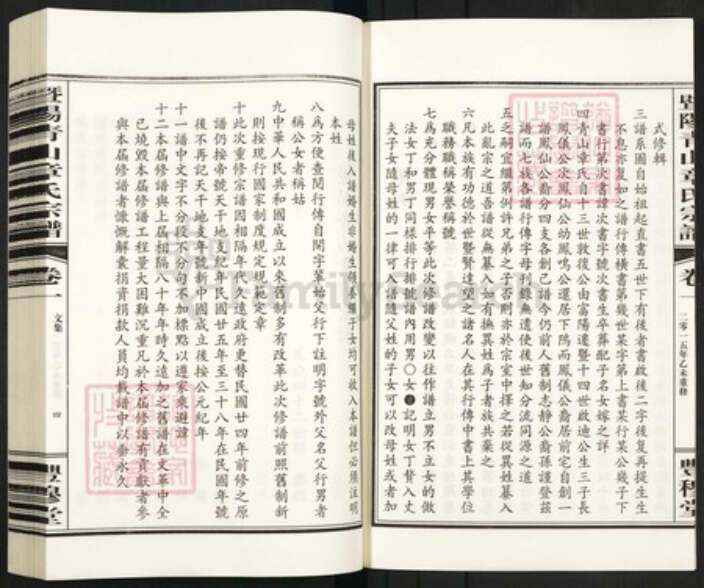 暨陽青山章氏宗譜
卷一
二零一五年乙未重修
豐程堂
式修輯
三譜系圖自始祖起直書五世下有後者書啟後二字後复再提生生
不息亦复如之譜行傳橫書第幾世某字第上書某行某公幾子下
書行第次書諱次書字號次書生卒葬配子名女嫁之詳
四青山章氏自十三世敦後公由富陽遷暨十四世啟迪公生三子長
鳳儀公次鳳仙公幼鳳鳴公還居下隖而鳳儀公裔居前宅自創一
譜鳳仙公裔分四支各創己譜今仍前人舊制志静公裔孫謹登茲
譜而七族各譜行傳字母則錄無遺使後世知分流同源之道
五之嗣宜繼第例許兄弟之子否則亦於宗室中擇之若從異姓纂入
此亂宗之道吾譜從無纂入如有撫異姓爲子者族共棄之
六凡本族有功德於世暨賢達望之諸名人在其行傳中書上其學位
職務職稱榮譽稱號
七爲充分體現男女平等此次修譜改變以往作譜立男不立女的做
法女丁和男丁同樣排行排號譜内用男〇女●記明女丁贅入丈
夫子女隨母姓的一律可入譜隨父姓的子女可以改母姓或者加
母姓後入譜婚生非婚生領養繼子女均可收入本譜但必須註明
本姓
八爲方便查閱行傳自閱字輩始父行下註明字號外父名父行男者
稱公女者稱姑
九中華人民共和國成立以來各制多有改革此次修譜前照舊制新
則按現行國家制度規定規範定章
十此次重修宗譜因相隔年代久遠政府更替民國廿四年前修之原
譜仍按帝號天干地支紀年民國廿五年至三十八年在民國年號
後不再記天干地支年號新中國成立後按公元紀年
十一譜中文字不分段不分句不加標點以遵家乘避諱
十二本屆修譜與上屆相隔八十年時時久遠加之舊譜在文革中全
已燒毀本屆修譜工程量大困難沉重凡於本屆修譜有貢獻者參
與本屆修譜者慷慨解囊捐資捐款人員均載譜中以垂永久
暨陽青山章氏宗譜
卷一
文集
四
豐程堂
FamilySearch